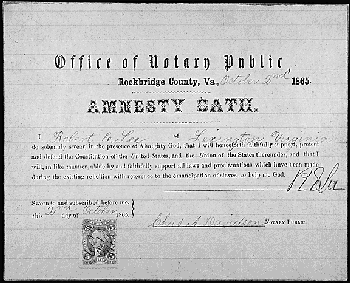 Office of Notary Public
Rockbridge County, Va., October 2nd 1865
AMNESTY OATH.
I Robert E. Lee of Lexington Virginia
do solemnly swear in the presence of Almighty God, that I will henceforth faithfully support, protect
and defend the Constitution of the United States, and the Union of the States thereunder, and that I
will, in like manner, abide by and faithfully support all laws and proclamations which have been made
during the existing rebellion with reference to the emancipation of slaves, so help me God.
R E Lee
Sworn to and subscribed before me,
this 2nd day of October 1865.
Notary Public.